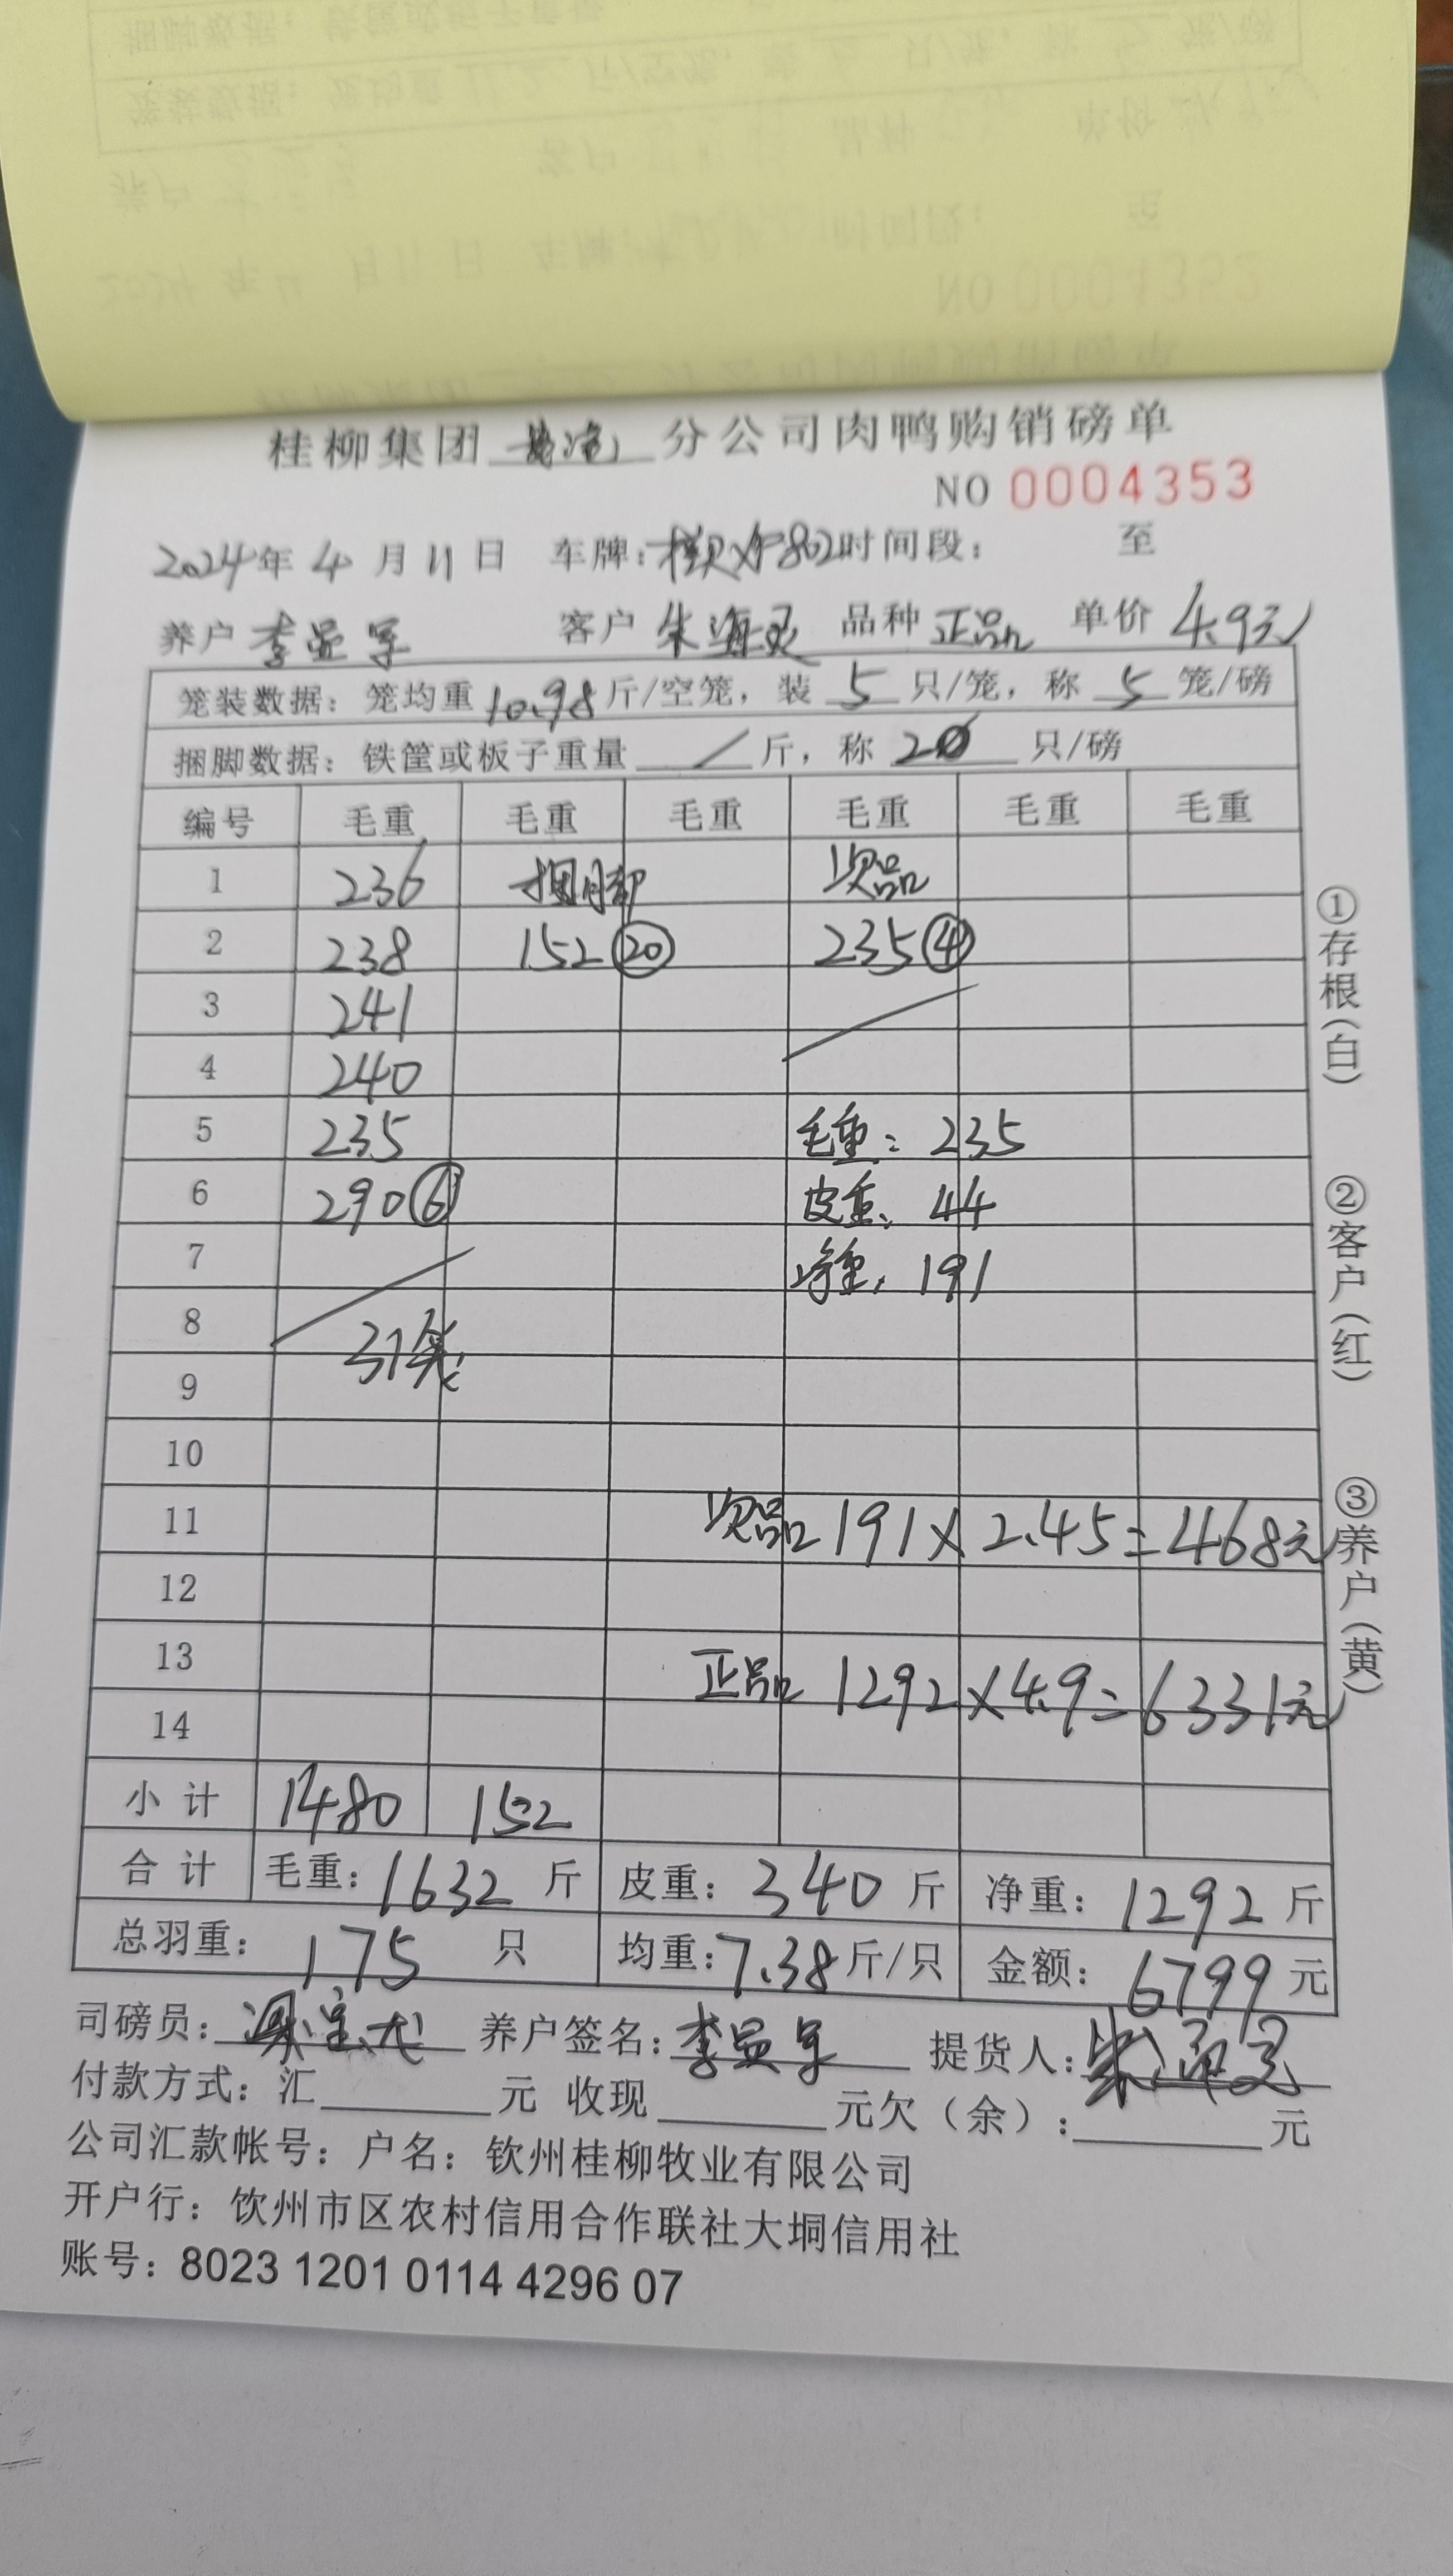 NO 0004352
桂柳集团 分公司肉鸭购销磅单
NO 0004353
2024年 4 月 11 日 车牌: 时间段: 至
养户 李显军 客户 朱海灵 品种 正品 单价 4.9元
笼装数据: 笼均重 10.98 斤/空笼, 装 5 只/笼, 称 5 笼/磅
捆脚数据: 铁筐或板子重量 / 斤, 称 20 只/磅
编号 毛重 毛重 毛重 毛重 毛重 毛重
1 236 捆脚 次品
2 238 152 ⑳ 235 ④
3 241
4 240
5 235 毛重: 235
6 290 ⑥ 皮重: 44
7 净重: 191
8 31笼
9
10
11 次品 191×2.45=468元
12
13 正品 1292×4.9=6331元
14
小计 1480 152
合计 毛重: 1632 斤 皮重: 340 斤 净重: 1292 斤
总羽重: 175 只 均重: 7.38 斤/只 金额: 6799 元
司磅员: 养户签名: 李显军 提货人: 朱海灵
付款方式: 汇 元 收现 元欠（余）: 元
公司汇款帐号: 户名: 钦州桂柳牧业有限公司
开户行: 饮州市区农村信用合作联社大垌信用社
账号: 8023 1201 0114 4296 07
①存根(白)
②客户(红)
③养户(黄)